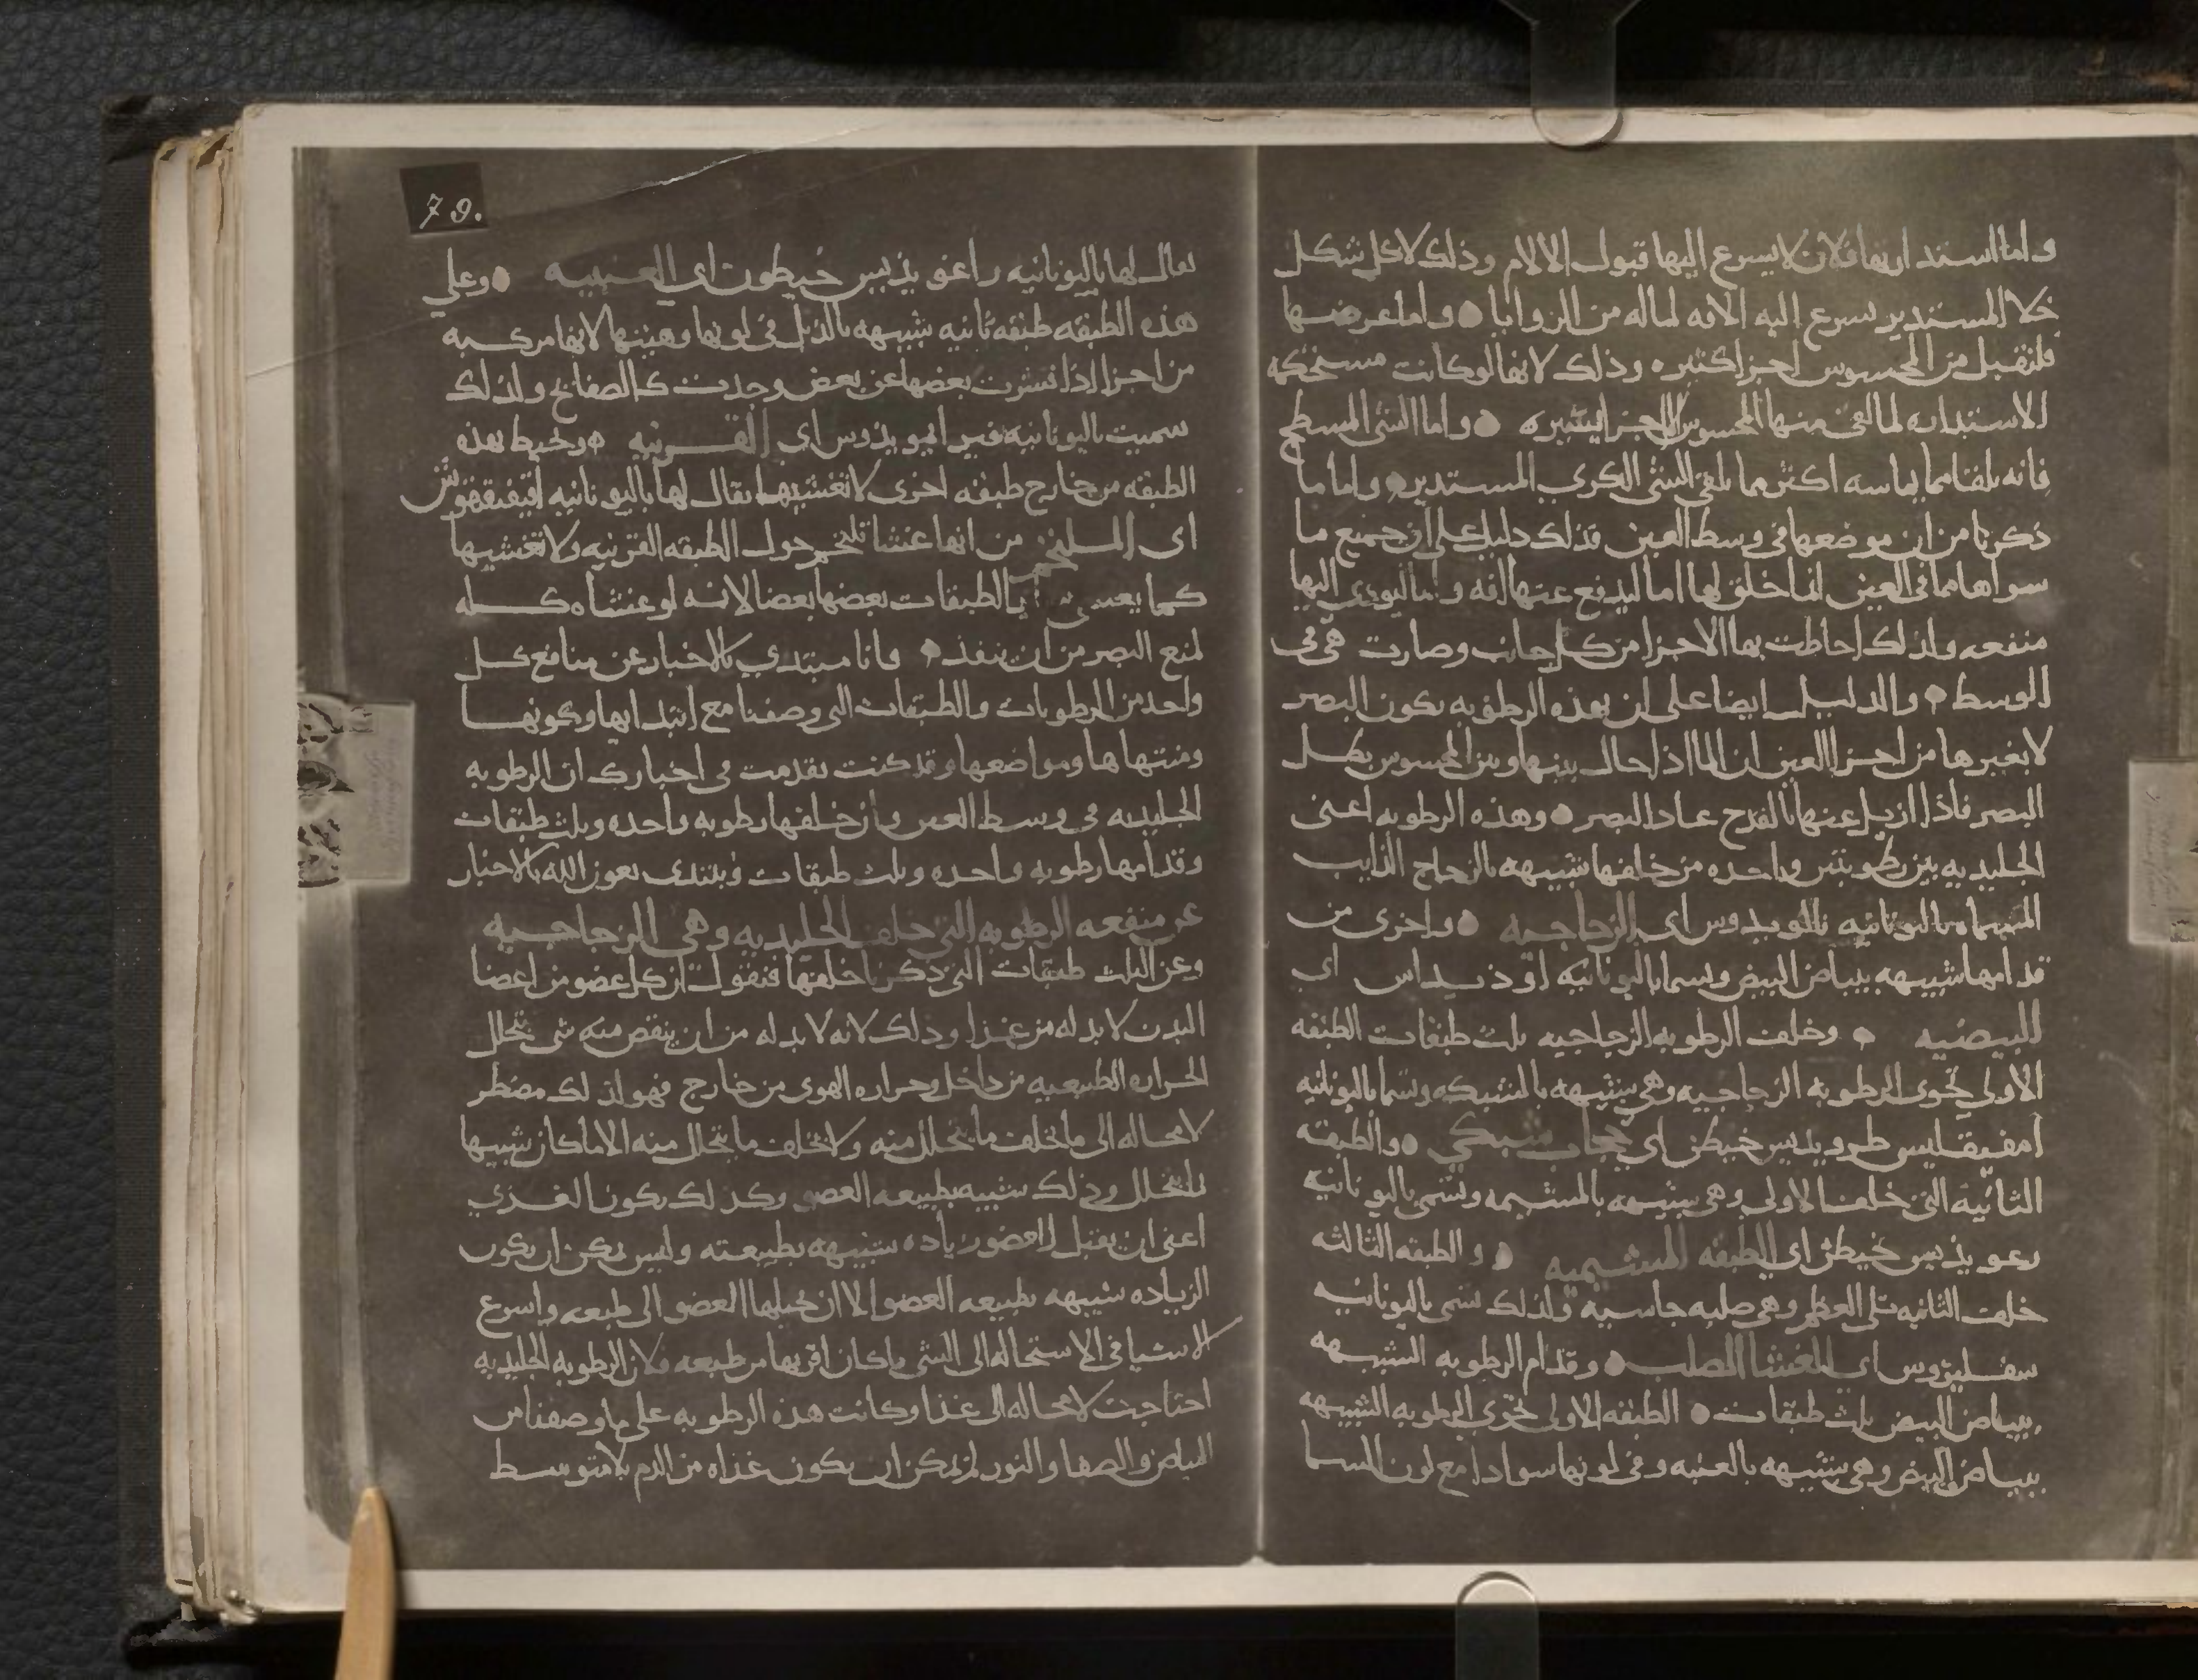 واما استدارتها فلان لا يسرع اليها قبول الالام وذلك لان كل شكل
خلا المستدير يسرع اليه الافه لما له من الزوايا واما عرضها
فلتقبل من المحسوس اجزا كثيره وذلك لانها لو كانت مستحكمه
الاستداره لما لقي منها المحسوس الا جزا يسيره واما الشي المسطح
فانه يلقا مما يماسه اكثر مما يلقي الشي الكري المستدير واما ما
ذكرنا من ان موضعها في وسط العين فذلك دليل على ان جميع ما
سواها مما في العين انما خلق لها اما ليدفع عنها افه واما ليودي اليها
منفعه ولذلك احاطت بها الاجزا من كل جانب وصارت هي في
الوسط والدليل ايضا على ان بهذه الرطوبه يكون البصر
لا بغيرها من اجزا العين ان الما اذا حال بينها وبين المحسوس بطل
البصر فاذا ازيل عنها بالقدح عاد البصر وهذه الرطوبه اعنى
الجليديه بين رطوبتين واحده من خلفها شبيهه بالزجاج الذايب
المسماه باليونانيه اي الزجاجيه واخرى من
قدامها شبيهه ببياض البيض وتسما باليونانيه اووذيداس اي
البيضيه وخلف الرطوبه الزجاجيه ثلث طبقات الطبقه
الاولى تحوي الرطوبه الزجاجيه وهي شبيهه بالشبكه وتسما باليونانيه
امفيقليسطرويديس خيطن اي حجاب شبكي والطبقه
الثانيه التي خلفها الاولى وهي شبيهه بالمشيمه وتسمى باليونانيه
خيطن اي الطبقه المشيميه والطبقه الثالثه
خلف الثانيه تلي العظم وهي صلبه جاسيه ولذلك تسمى باليونانيه
سقليروس اي الغشا الصلب وقدام الرطوبه الشبيهه
ببياض البيض ثلث طبقات الطبقه الاولى تحوي الرطوبه الشبيهه
ببياض البيض وهي شبيهه بالعنبه وفي لونها سوادا مع لون السما
79.
يقال لها باليونانيه خيطون اي العنبيه وعلي
هذه الطبقه طبقه ثانيه شبيهه بالذبل في لونها وهيئتها لانها مركبه
من اجزا اذا قشرت بعضها عن بعض وجدت كالصفايح ولذلك
سميت باليونانيه اي القرنيه وتحيط بهذه
الطبقه من خارج طبقه اخرى لا تغشيها يقال لها باليونانيه
اي الملتحم من انها غشا تلتحم حول الطبقه القرنيه ولا تغشيها
كما يغشي الطبقات بعضها بعضا لانه لو غشاه كله
لمنع البصر من ان ينفذ وانا مبتدي بالاخبار عن منافع كل
واحد من الرطوبات والطبقات التي وصفنا مع ابتدايها وكونها
ومنتهاها ومواضعها وقد كنت تقدمت في اخبارك ان الرطوبه
الجليديه في وسط العين وان خلفها رطوبه واحده وثلث طبقات
وقدامها رطوبه واحده وثلث طبقات ونبتدي بعون الله بالاخبار
عن منفعه الرطوبه التي خلف الجليديه وهي الزجاجيه
وعن الثلث طبقات التي ذكرنا خلفها فنقول ان كل عضو من اعضا
البدن لا بد له من غذا وذلك لانه لا بد له من ان ينقص منه شي بتحلل
الحراره الطبيعيه من داخل وحراره الهوى من خارج فهو لذلك مضطر
لا محاله الى ما يخلف ما يتحلل منه ولا يخلف ما يتحلل منه الا ما كان شبيها
بالمتحلل وذلك شبيه بطبيعه العضو وكذلك يكون الغذي
اعنى ان يقبل العضو زياده شبيهه بطبيعته وليس يمكن ان يكون
الزياده شبيهه بطبيعه العضو الا ان يحيلها العضو الى طبعه واسرع
الاشيا في الاستحاله الى الشي ما كان اقربها من طبيعه فلان الرطوبه الجليديه
احتاجت لا محاله الى غذا وكانت هذه الرطوبه على ما وصفنا من
البياض والصفا والنور لم يمكن ان يكون غذاه من الدم بلا متوسط